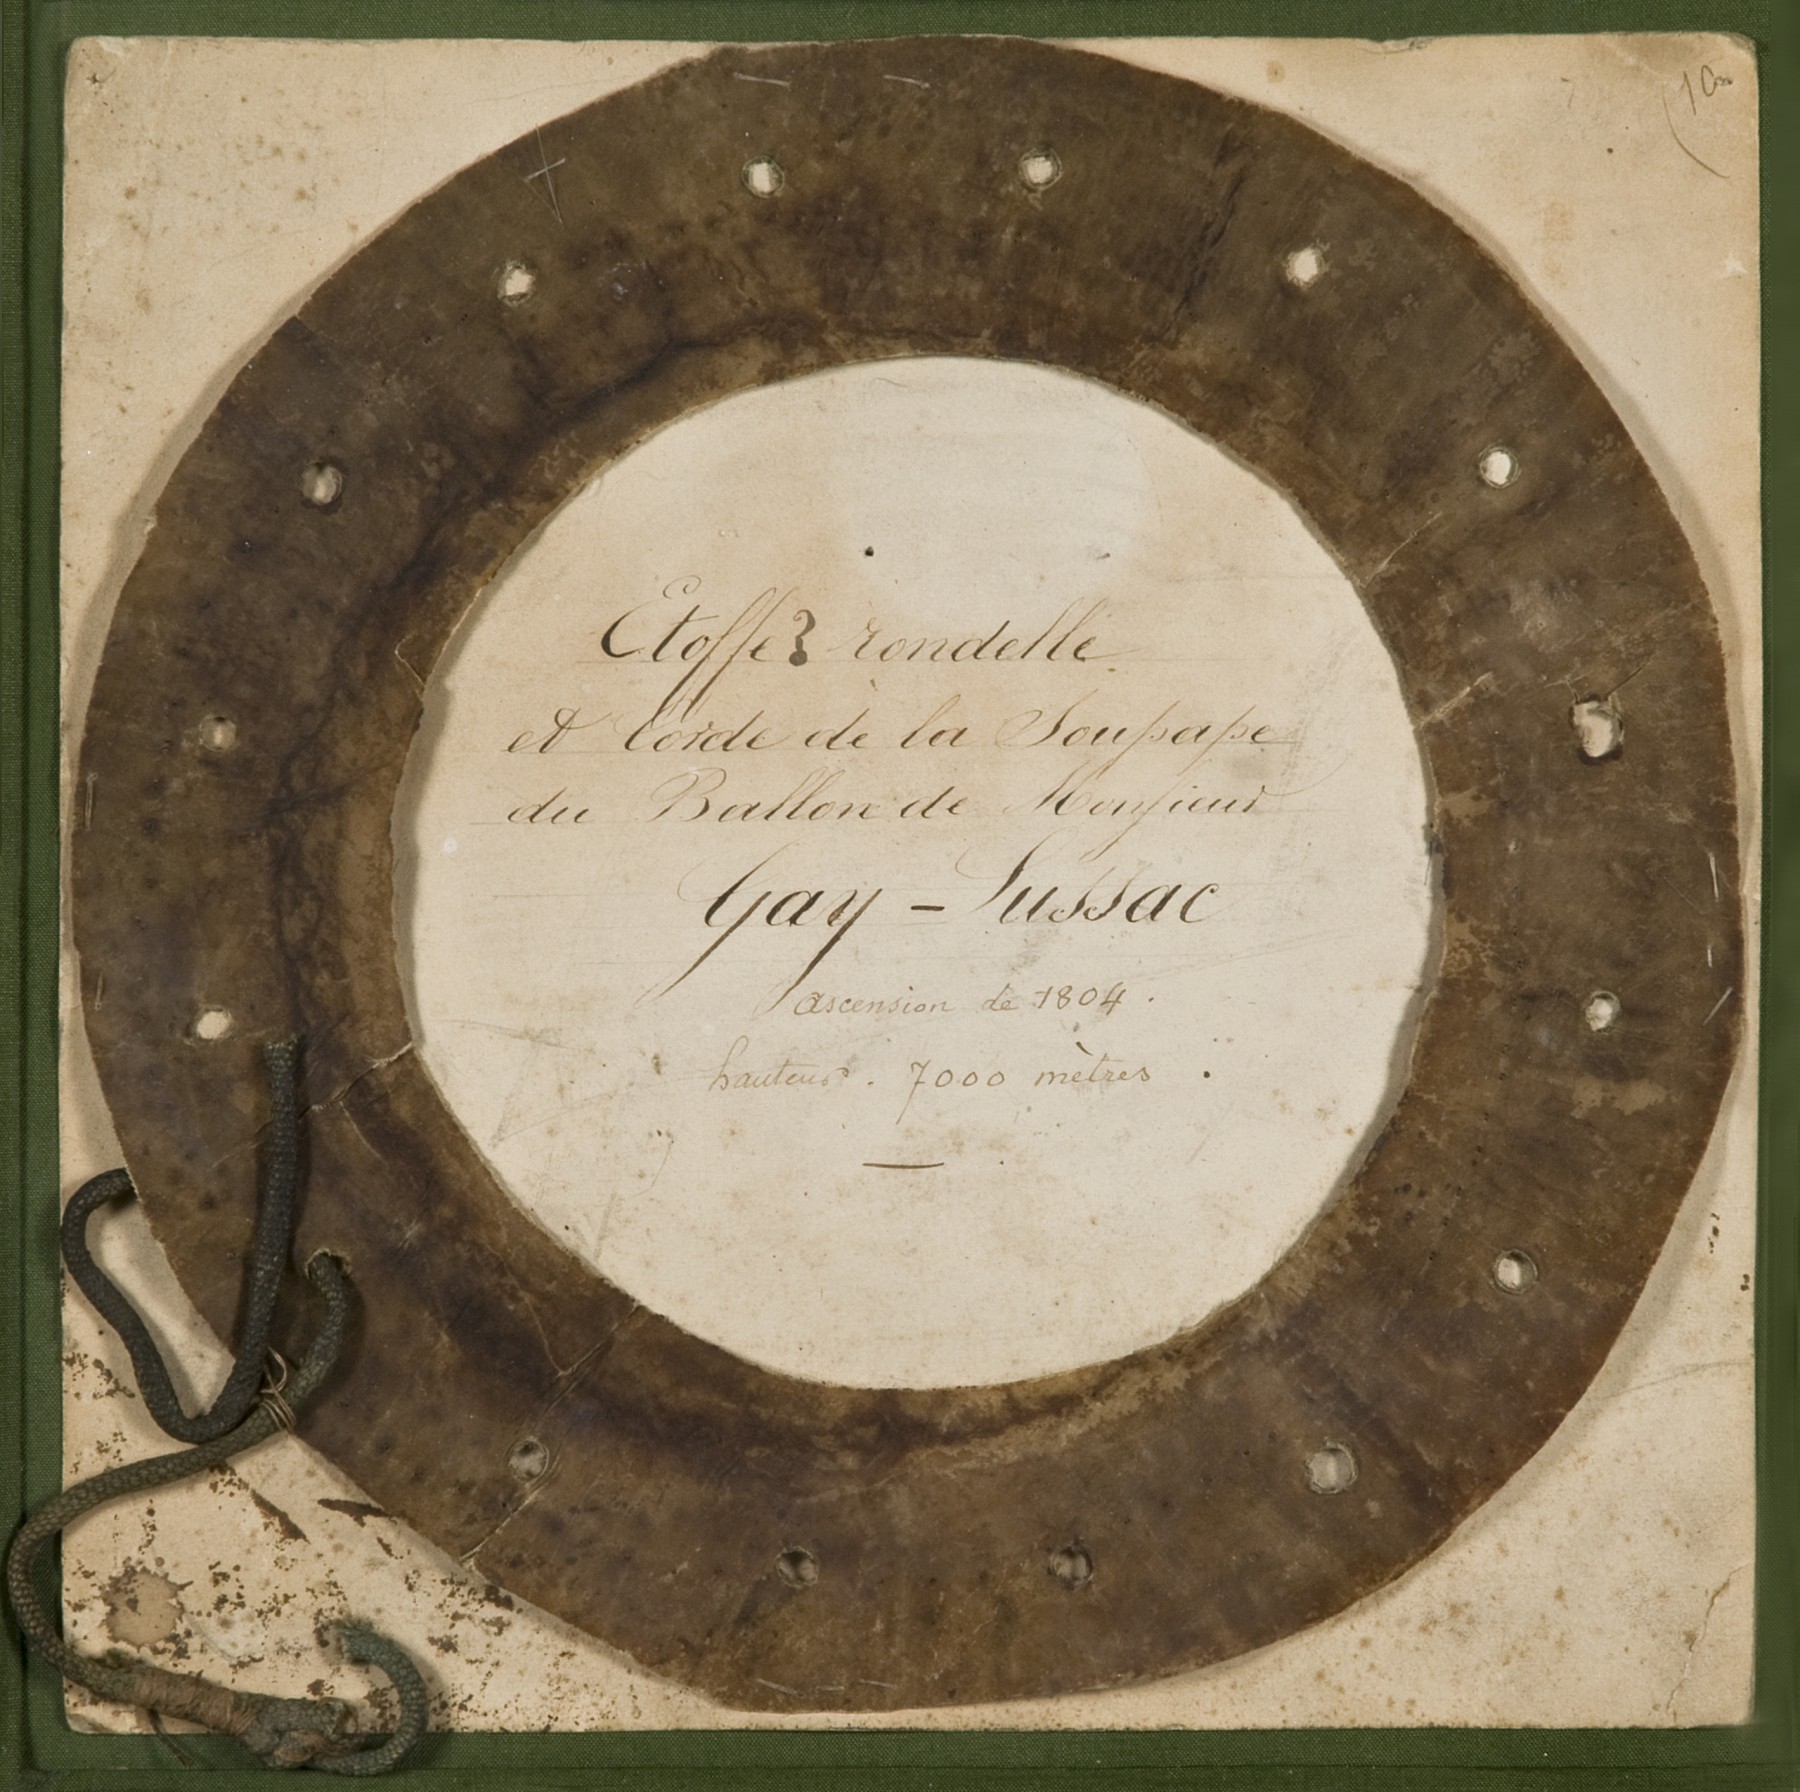 Etoffe? rondelle
et Corde de la Soupape
du Ballon de Monsieur
Gay - Lussac
ascension de 1804.
hauteur. 7000 mètres.